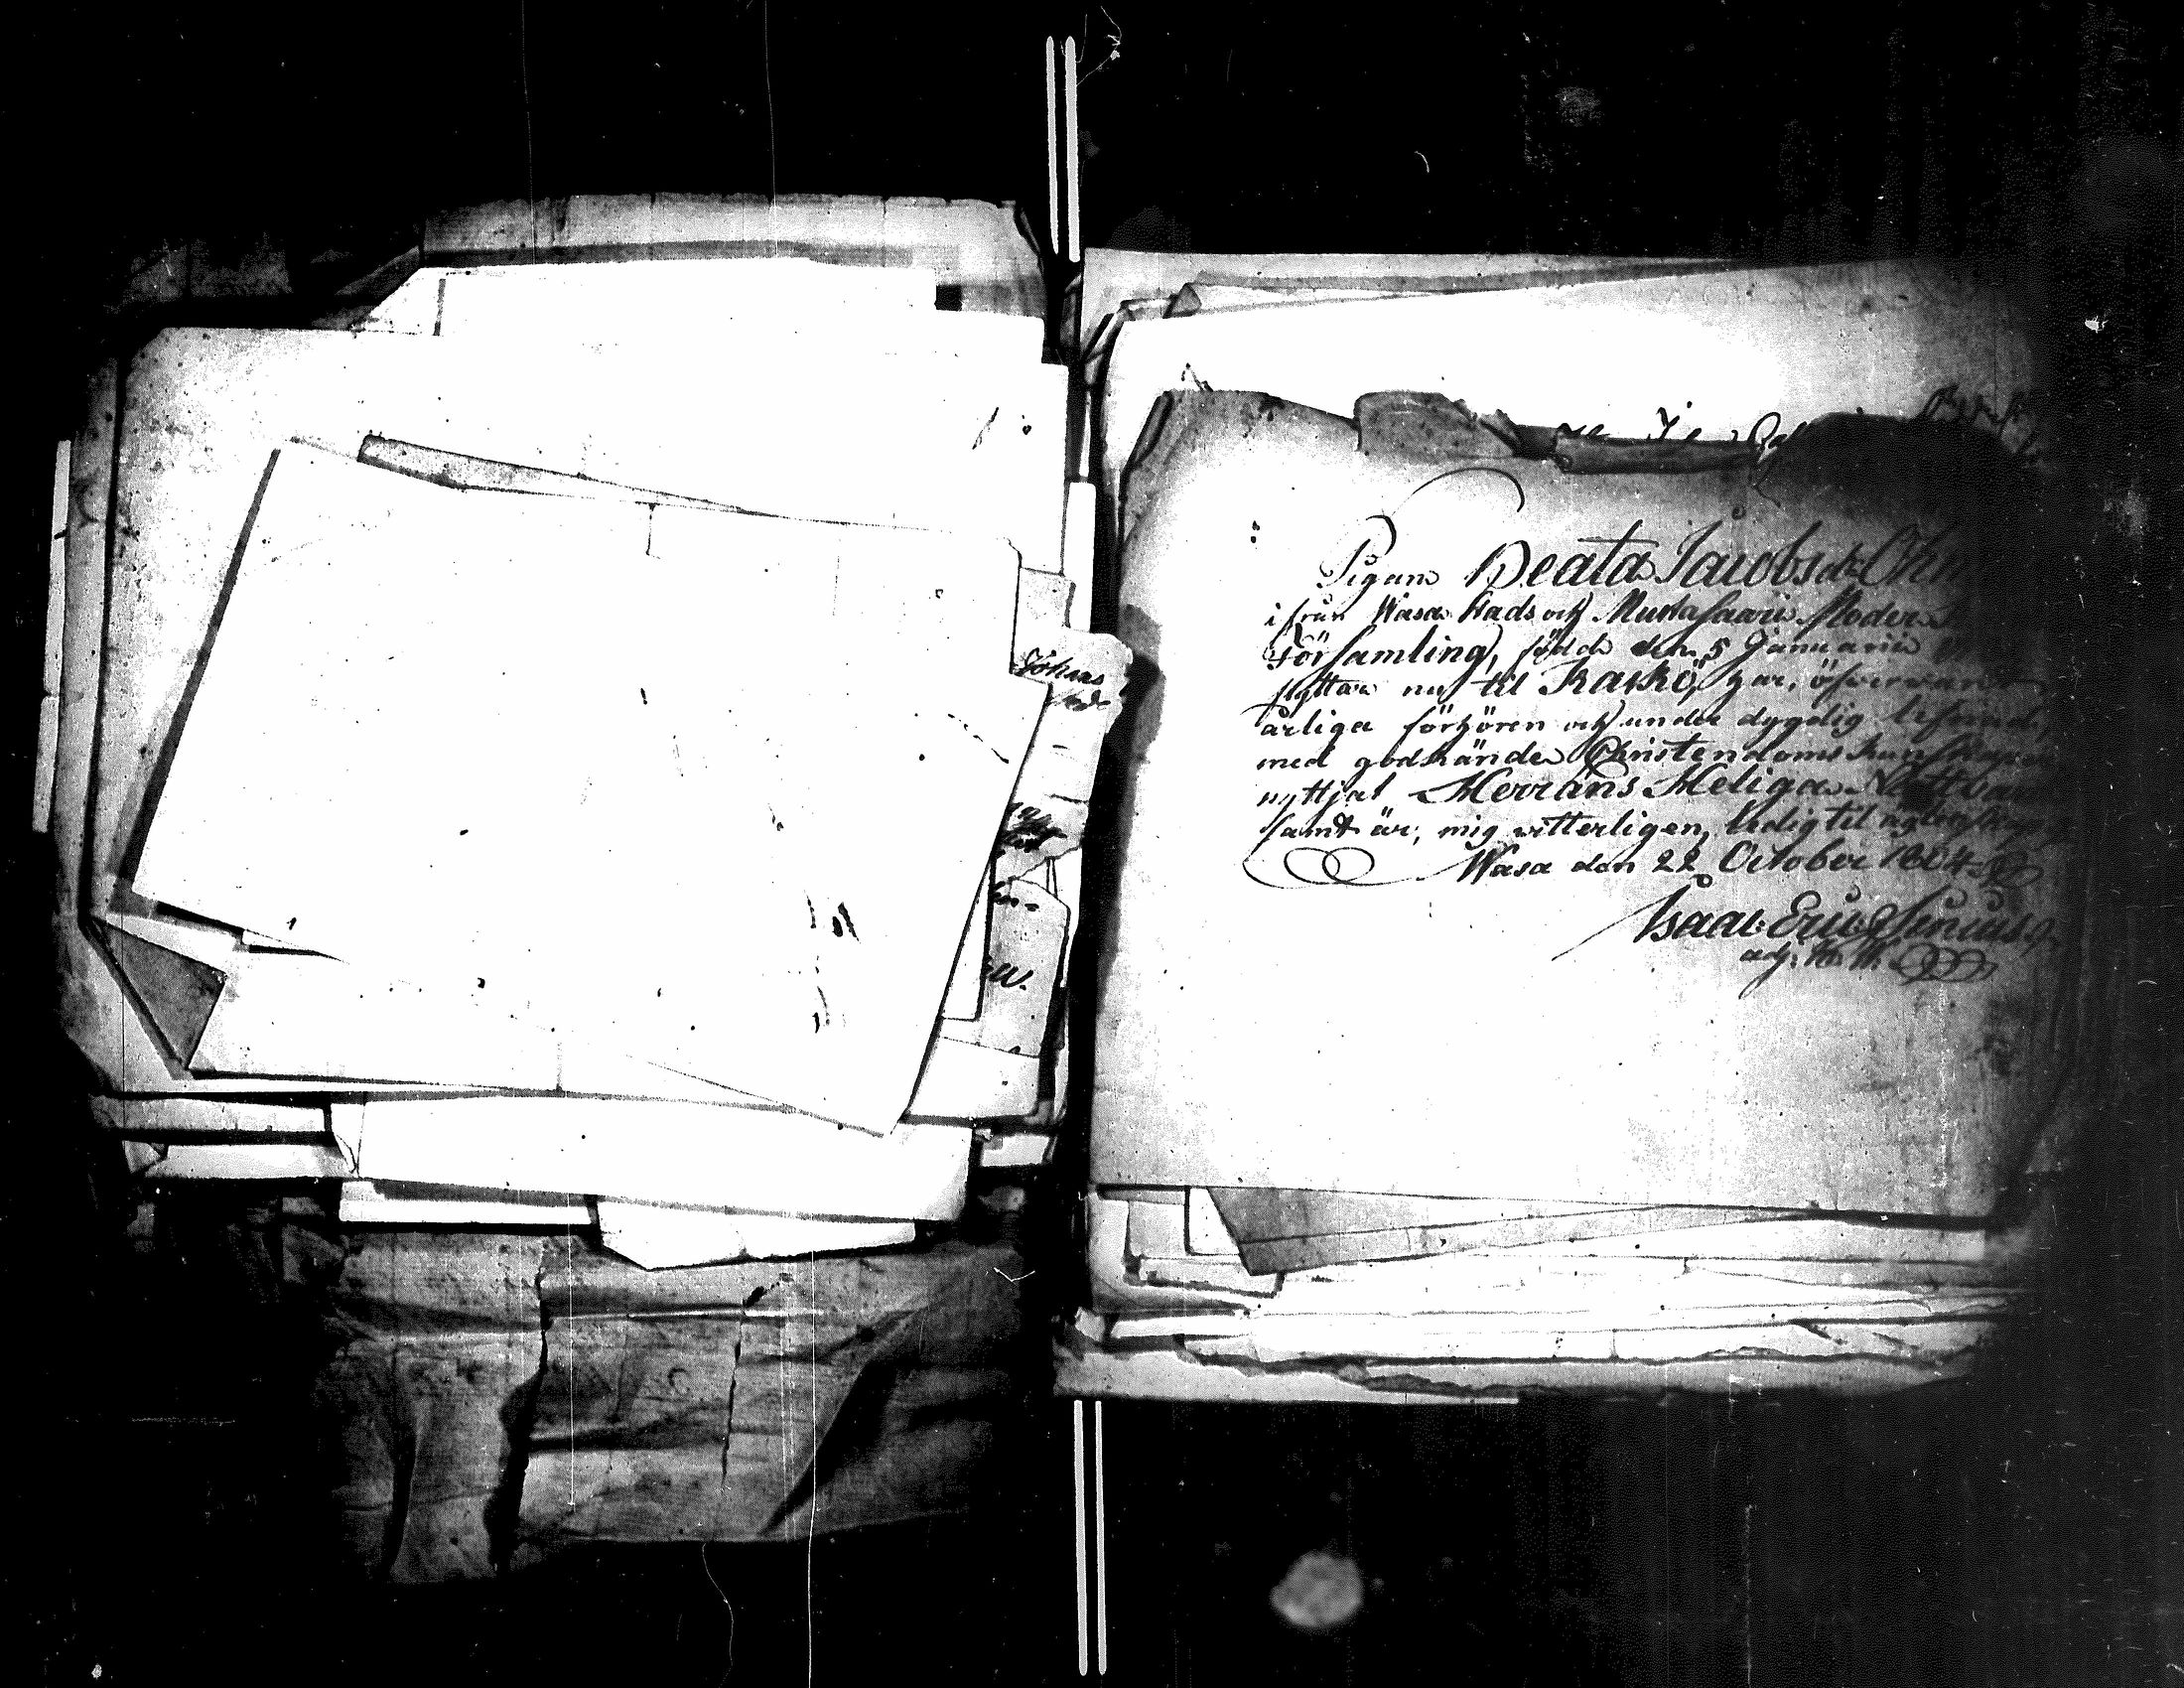 Johans
Pigan Beata Jacobsdr
ifrån Wasa Stads och Mustasaari Moder
Församling, född den 5 Januarii
flyttar nu til Kaskö, har, öfverwarit
årliga förhören och under dygdig lefnad,
med godkände Christendoms kunskaper
nyttjat Herrans Heliga Nattvard
samt är, mig vitterligen, ledig til ägtenskap
Wasa den 22 October 1804
Isaac Eric
adj.